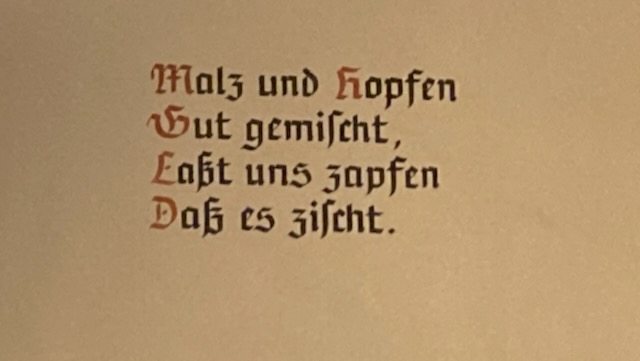 Malz und Hopfen
Gut gemiſcht,
Laßt uns zapfen
Daß es ziſcht.